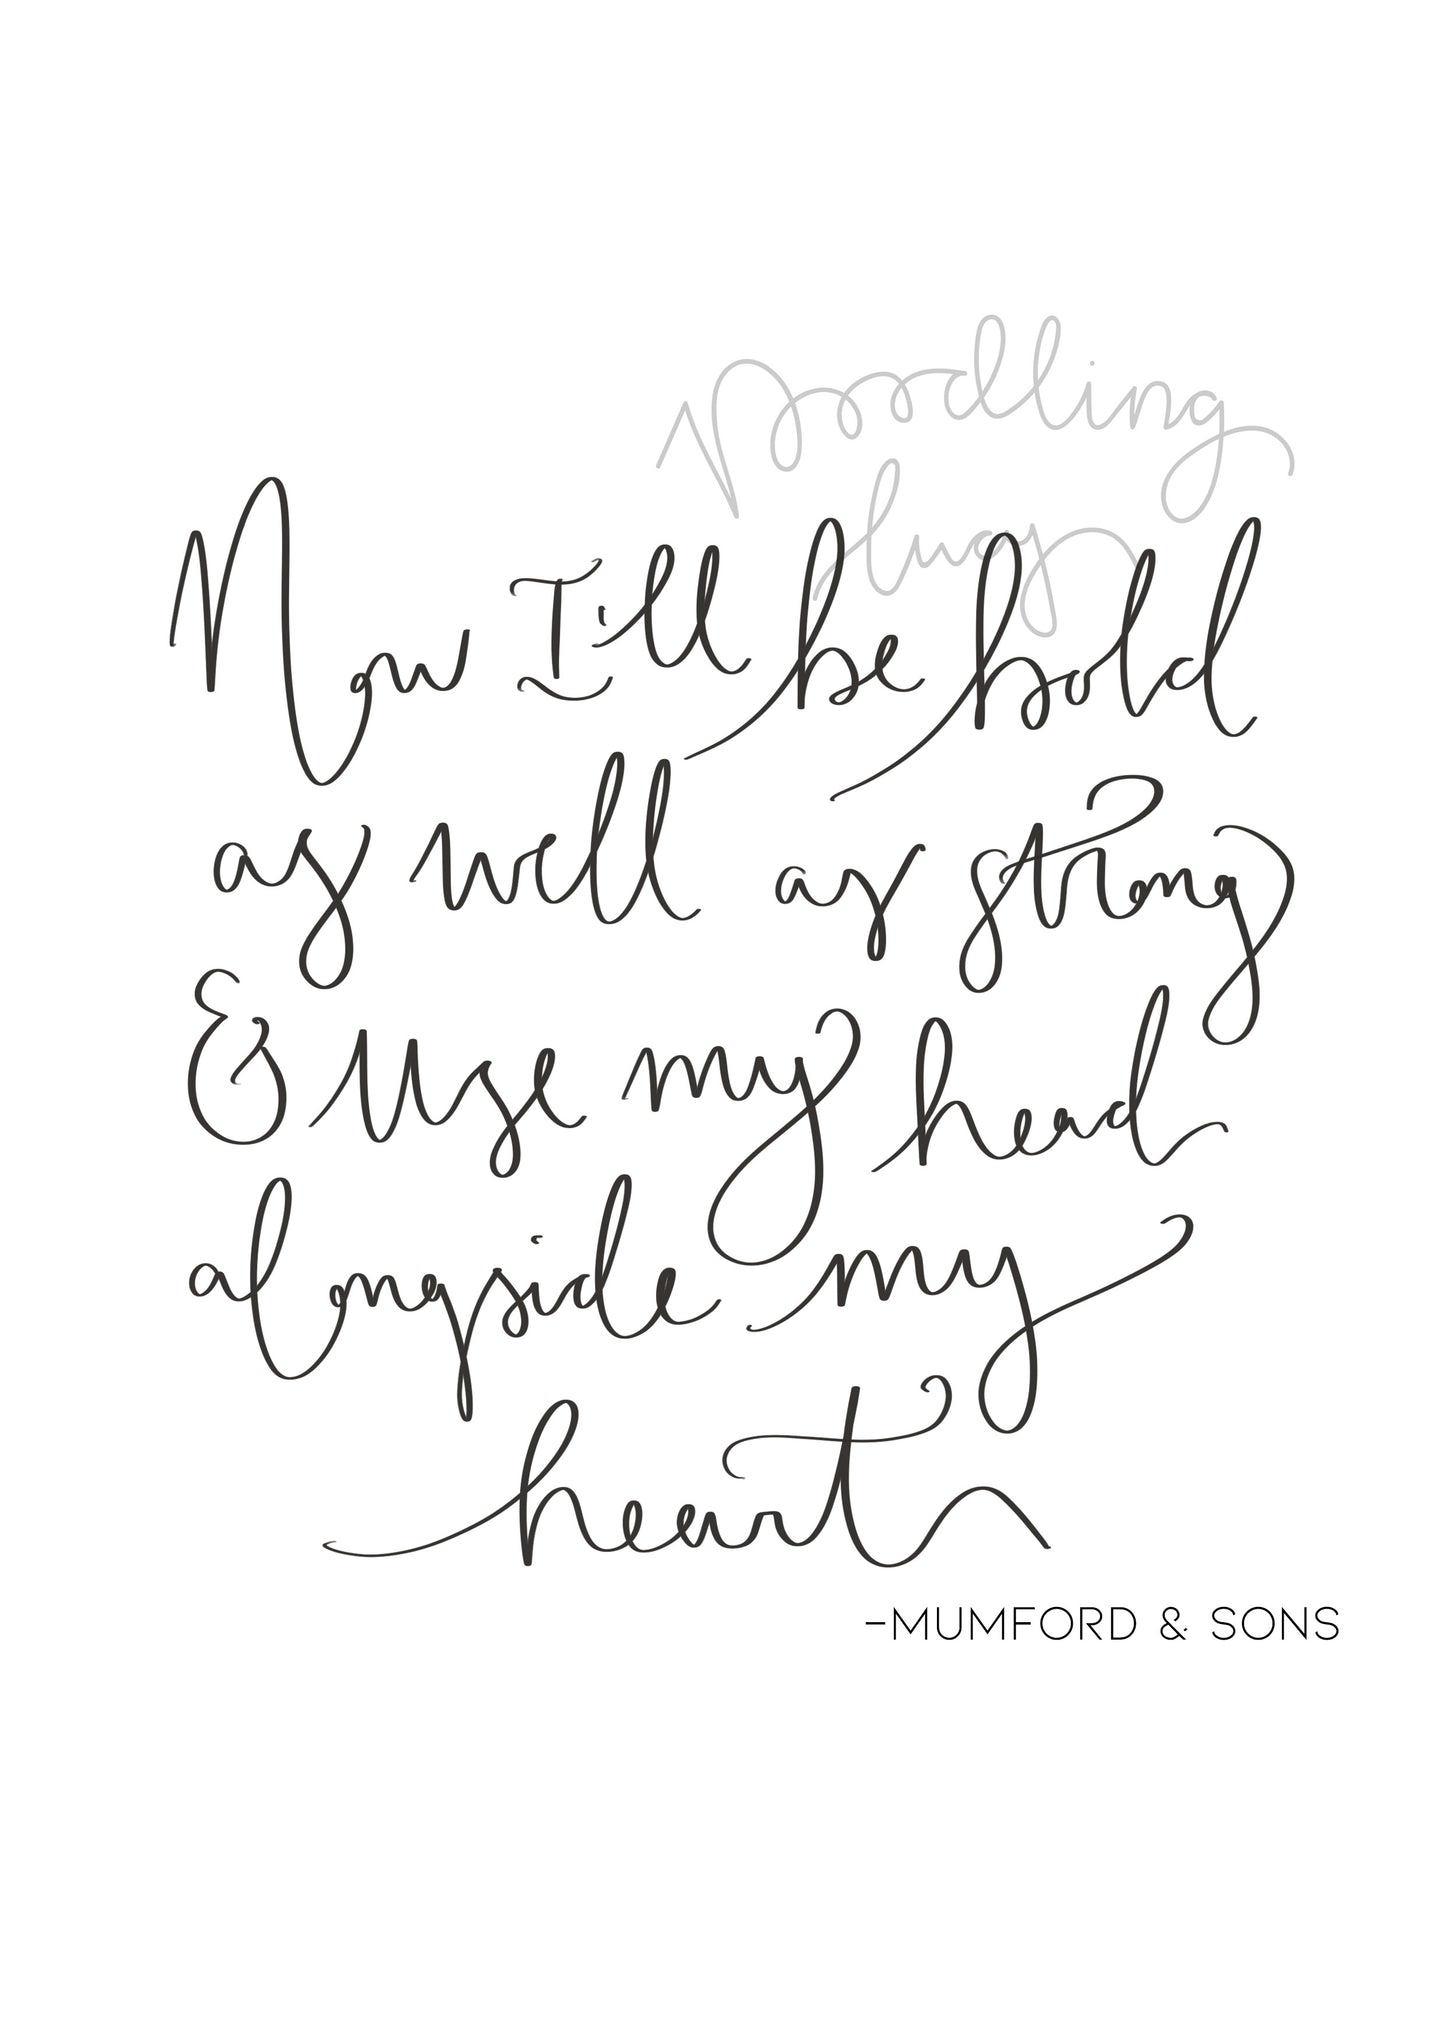 Noodling
Lucy
Now I'll be bold
as well as strong
& use my head
alongside my
heart
-MUMFORD & SONS